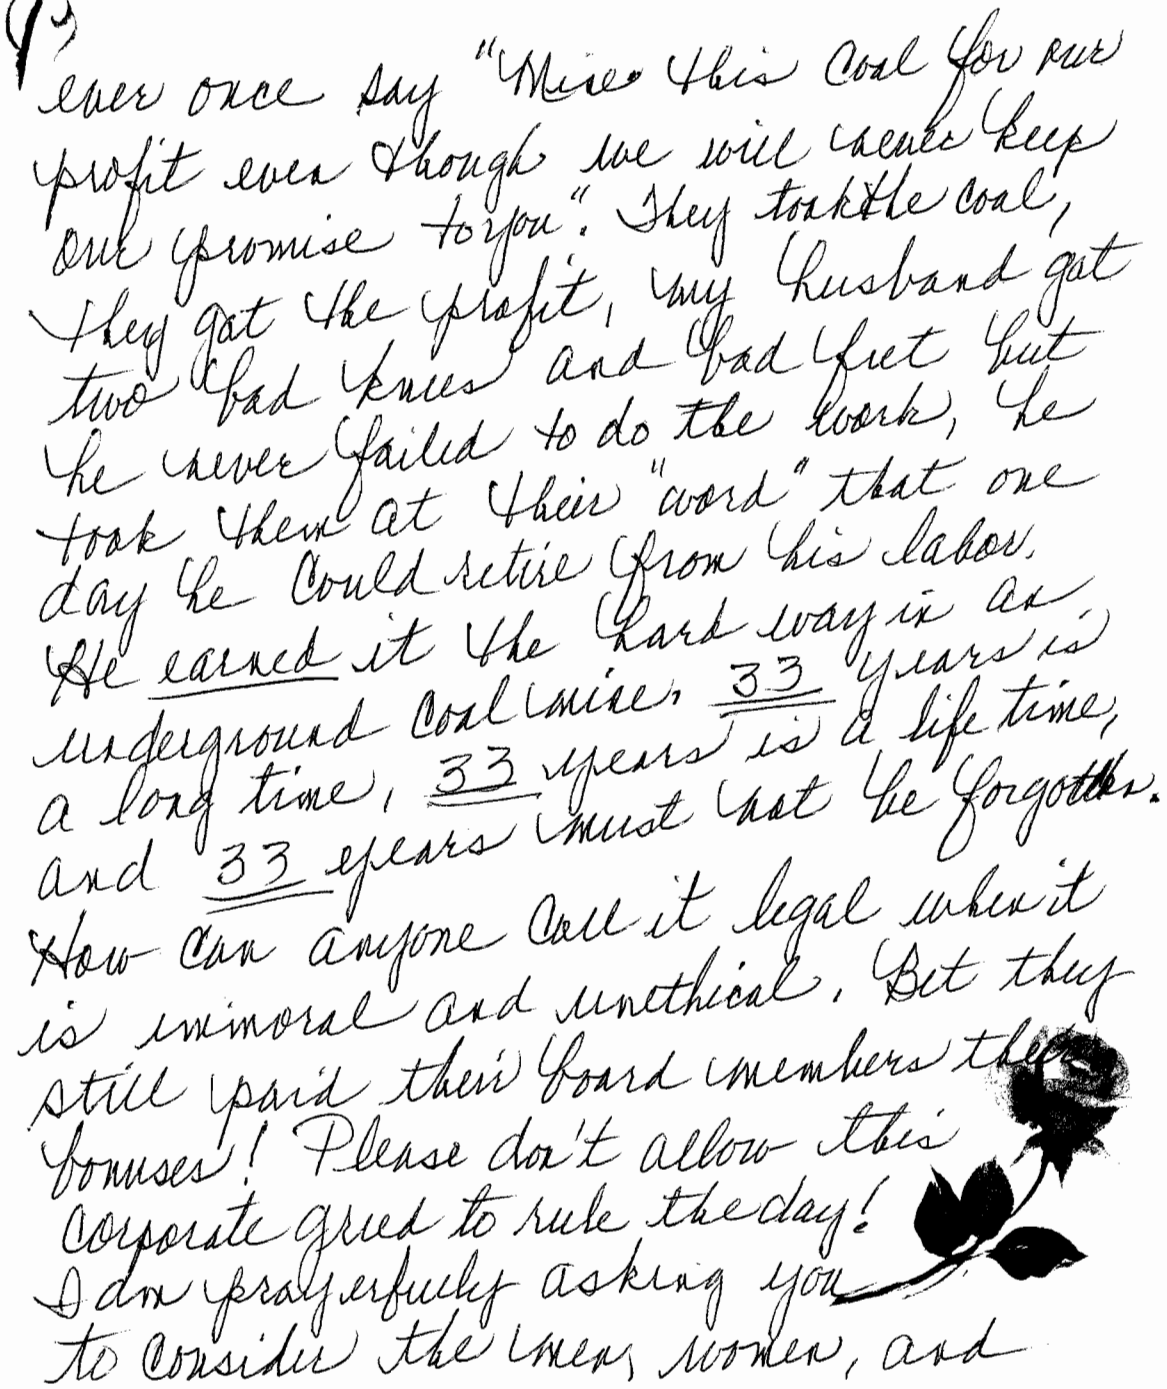 ever once say "Mine this coal for our
profit even though we will never keep
our promise to you". They took the coal,
they got the profit, my husband got
two bad knees and bad feet but
he never failed to do the work, he
took them at their "word" that one
day he could retire from his labor.
He earned it the hard way in an
underground coal mine. 33 years is
a long time, 33 years is a life time,
and 33 years must not be forgotten.
How can anyone call it legal when it
is immoral and unethical. Bet they
still paid their board members their
bonuses! Please don't allow this
corporate greed to rule the day!
I am prayerfully asking you
to consider the men, women, and